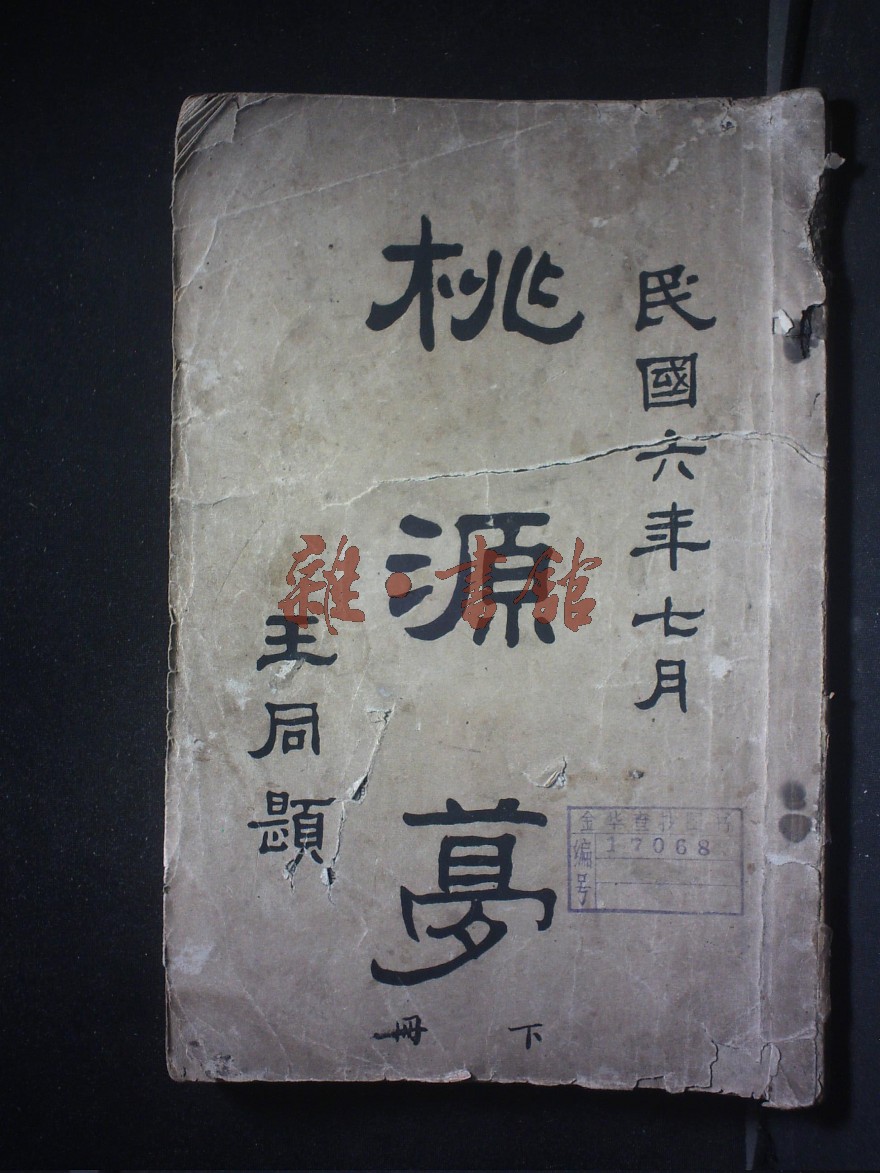 民國六年七月
桃源夢
王同題
下冊
雜·書館
金华
编号
17068